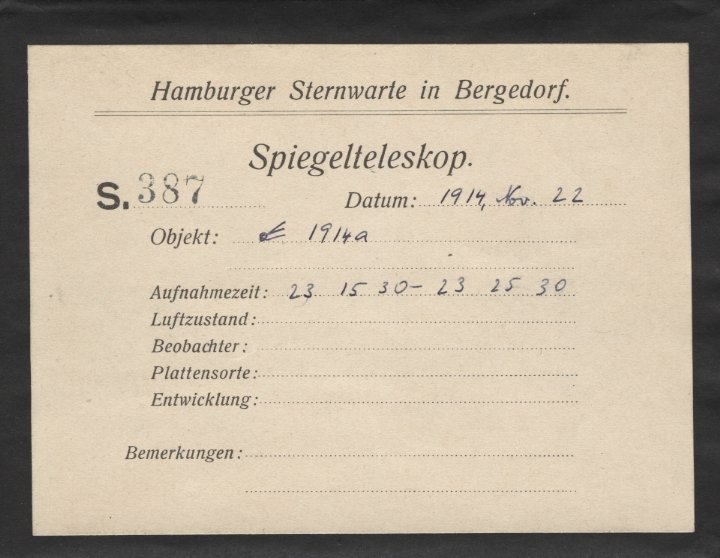 Hamburger Sternwarte in Bergedorf.
Spiegelteleskop.
S. 387
Datum: 1914, Nov. 22
Objekt: ☄ 1914a
Aufnahmezeit: 23 15 30 – 23 25 30
Luftzustand:
Beobachter:
Plattensorte:
Entwicklung:
Bemerkungen: